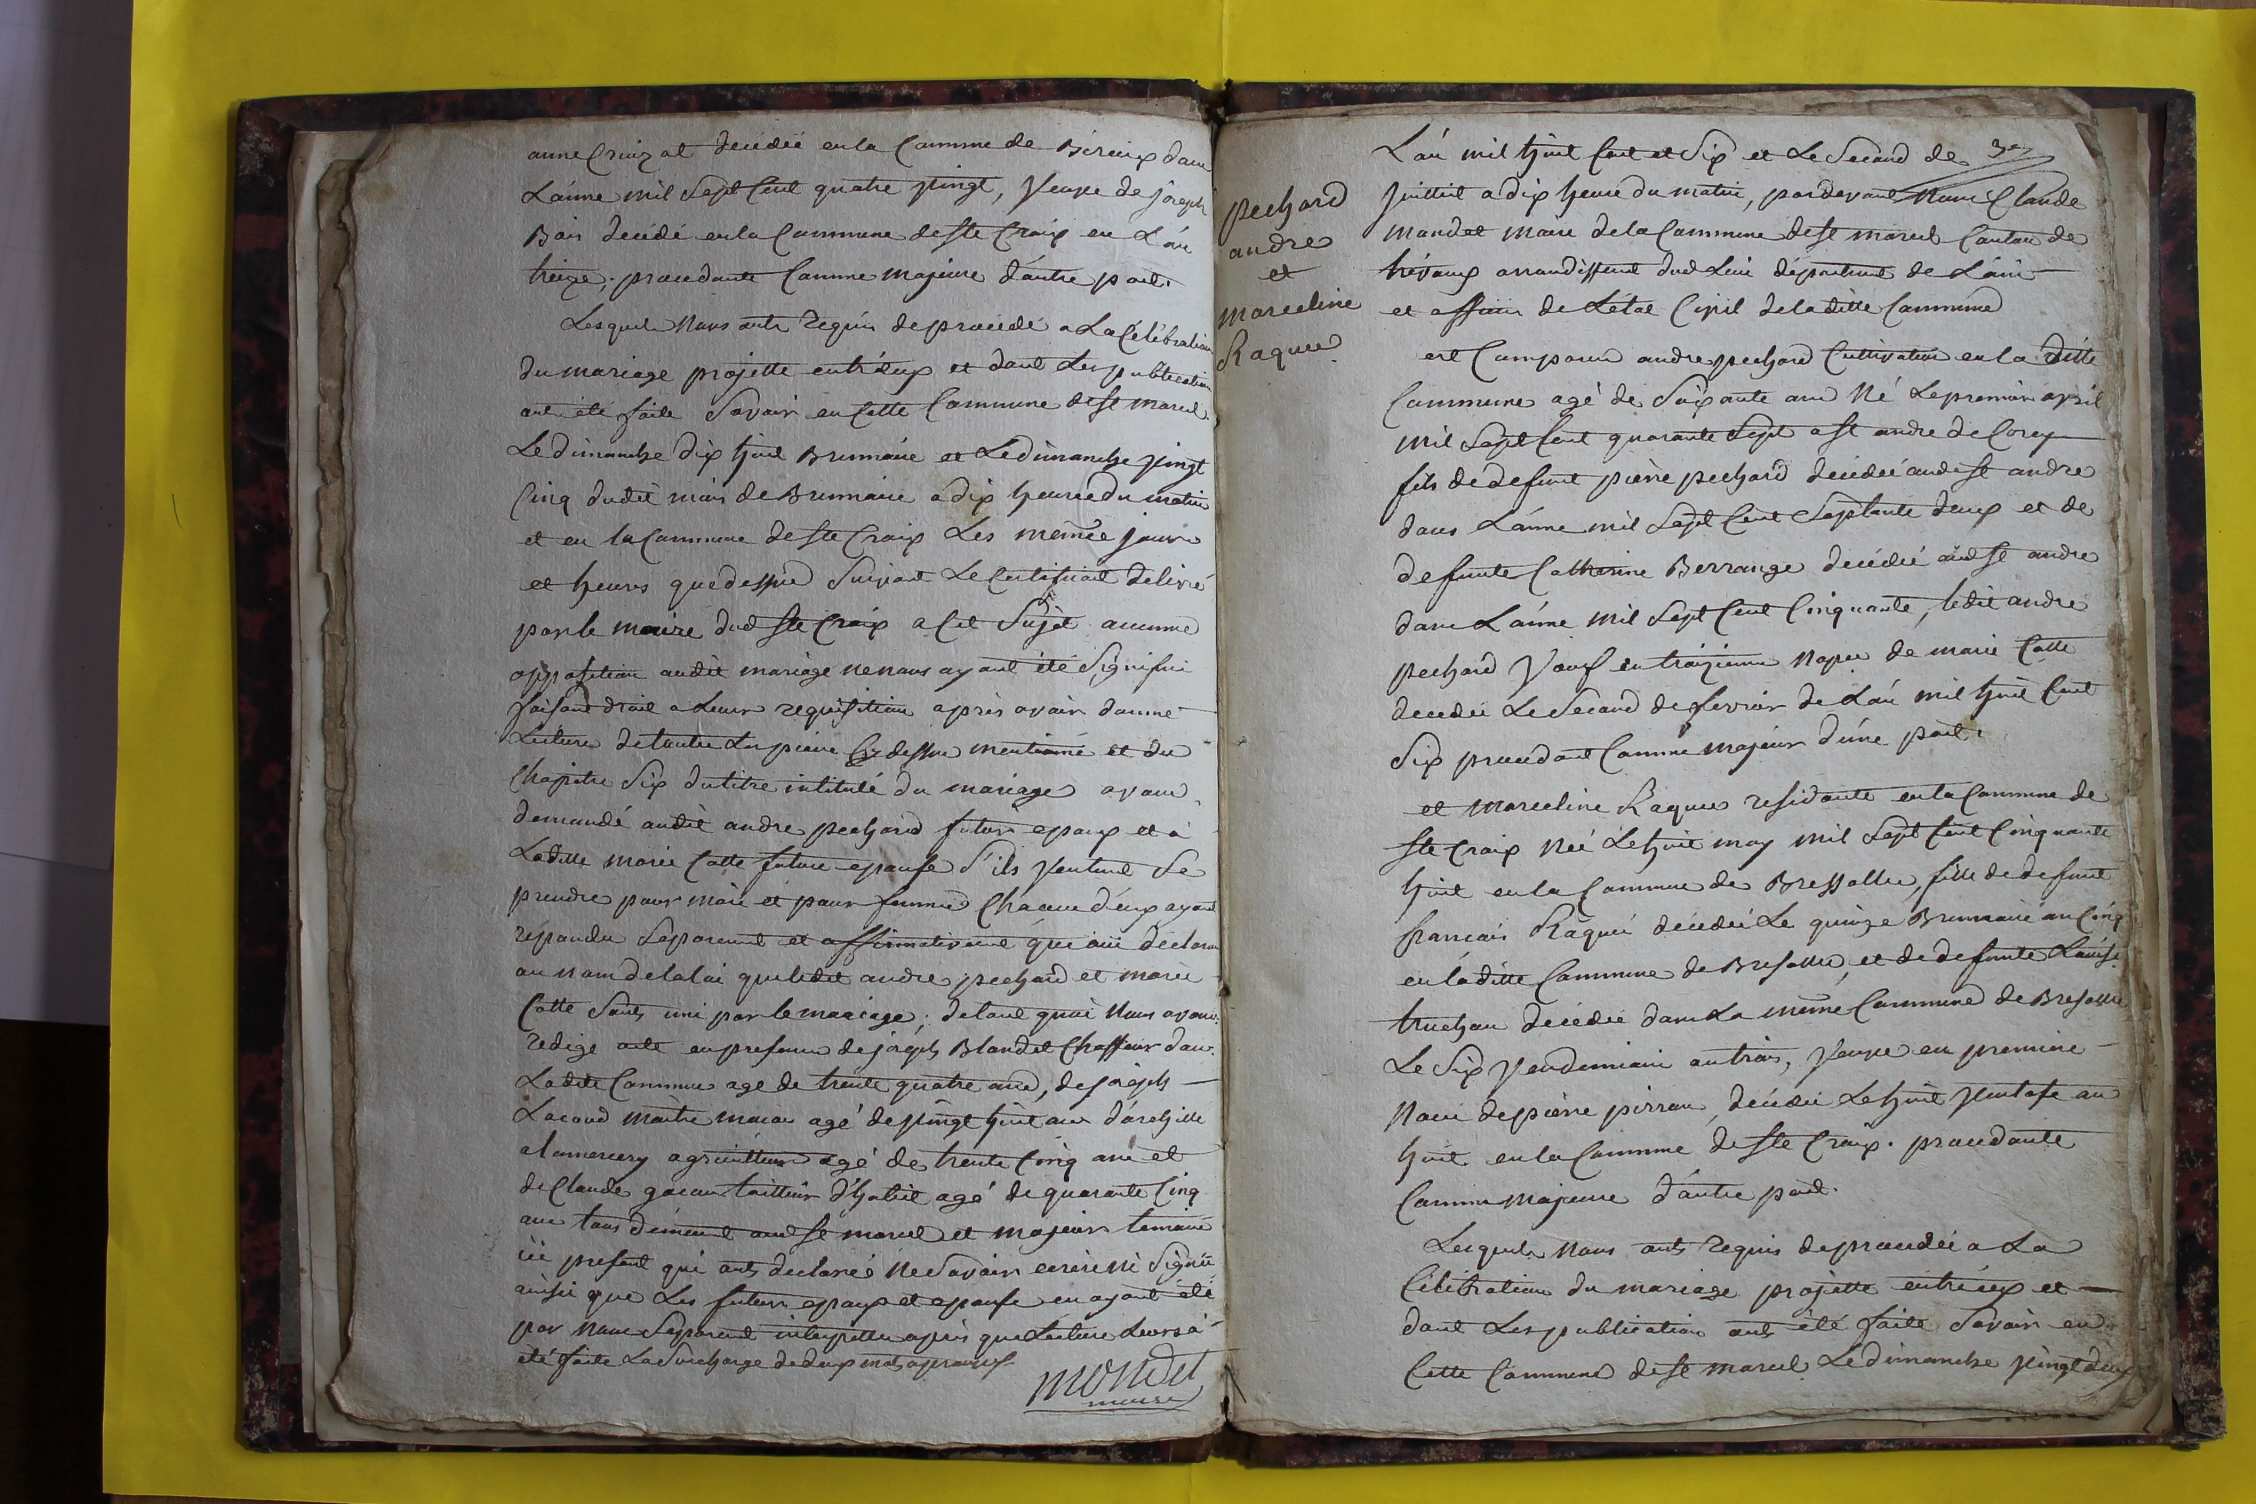 anne Crinzat décédée en la Commune de Bireux dans
L'anne mil Sept Cent quatre vingt, Veuve de joseph
Bois décédé en la Commune de ste Croix en L'an
treize. procedante Comme majeure d'autre part.
Lesquels Nous onts requis de procédé a La Célébration
du mariage projette entr'eux et dont Les publication
onts été faite Savoir en Cette Commune de st marcel
Le dimanche dix huit Brumaire et Le dimanche vingt
Cinq dudit mois de Brumaire a dix heure du matin
et en la Commune de ste Croix Les meme jour
et heures que dessus Suivant Le Certificat delivré
par le maire dud ste Croix a Cet Sujet aucune
opposition audit mariage ne nous ayant été Signifié
faisant droit a Leur requisition après avoir donné
Lecture de toutes Les pièce Cy dessus mentionné et du
Chapitre Six du titre intitulé du mariage avons
demandé audit andre pechard futur epoux et à
Ladite marie Cotte future epouse S'ils veulent Se
prendre pour mari et pour femme Chacun d'eux ayant
répondu Séparement et affirmativement que oui déclarons
au Nom de la loi que ledit andre pechard et marie
Cotte Sonts uni par le mariage; de tout quoi Nous avons
rédigé acte en presence de joseph Blandet Chasseur dans
Ladite Commune age de trente quatre ans, de joseph
Lacond maitre macon agé de vingt huit ans d'archille
alamercery agriculteur agé de trente Cinq ans et
de Claude gacon tailleur d'habit agé de quarante Cinq
ans tous demeurant aud st marcel et majeur temoins
ici present qui onts déclarés Ne Savoir ecrire Ni Signer
ainsi que Les futurs epoux et epouse en ayant été
par Nous Séparement interpellé après que Lecture Leurs à
été faite La Surcharge de deux mots approuvés
mondet
maire
pechard
andre
et
marceline
Raquie
L'an mil huit Cent et Six et Le Second de
juillet a dix heure du matin, pardevant Nous Claude
mandet maire de la Commune de st marcel Canton de
trévoux arrondissement dud Lieu département de L'ain
et officier de L'état Civil de la ditte Commune
est Comparu andre pechard Cultivateur en la ditte
Commune agé de Soixante ans Né Le premier april
mil Sept Cent quarante Sept a st andre de Corcy
fils de defunt pierre pechard décédé aud st andre
dans L'anne mil Sept Cent Septante deux et de
defunte Catherine Berrange décédée aud st andre
dans L'anne mil Sept Cent Cinquante, ledit andre
pechard Veuf en troizieme Nopce de marie Cotte
decedée Le Second de fevrier de L'an mil huit Cent
Six procedant Comme majeur d'une part.
et marceline Raquie residante en la Commune de
ste Croix Née Le huit may mil Sept Cent Cinquante
huit en la Commune de Bressolle, fille de defunt
francois Raquié décédé Le quinze Brumaire an Cinq
en la ditte Commune de Bresolle, et de defunte Louise
truchon décédée dans La même Commune de Bresolle
Le Six Vendemiaire an trois, Veuve en premiere
Noce de pierre pirrau, décédé Le huit Ventose an
huit en la Commune de ste Croix. procedante
Comme Majeure d'autre part.
Lesquels Nous onts requis de procédée a La
Célébration du mariage projette entr'eux et
dont Les publication onts été faite Savoir en
Cette Commune de st marcel Le dimanche vingt deux